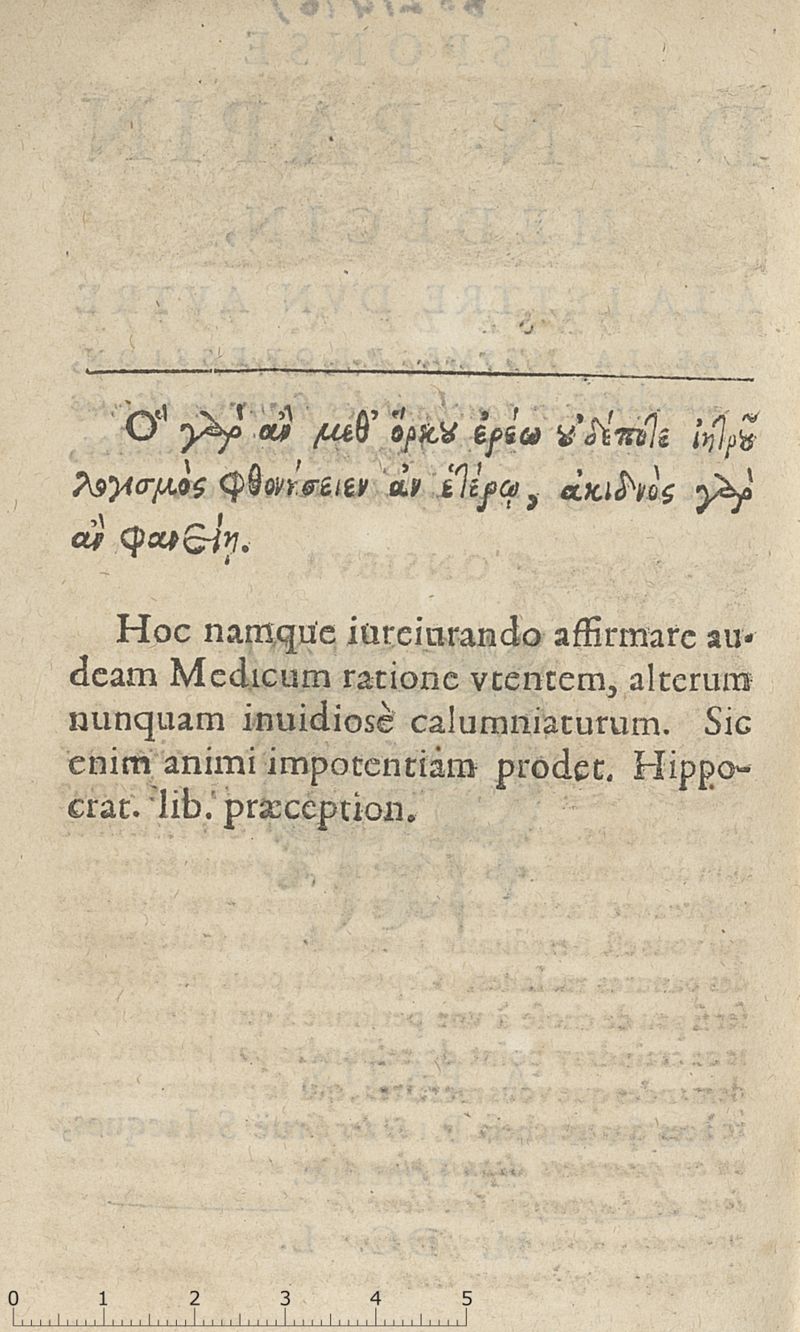 Ὃ γὰρ ἂν μεθ’ ὅρκου ἐρέω οὐδέποτε ἰητροῦ
λογισμὸς φθονήσειεν ἂν ἑτέρῳ, ἀκιδνὸς γὰρ
ἂν φανείη.
Hoc namque iureiurando affirmare au-
deam Medicum ratione vtentem, alterum
nunquam inuidiosè calumniaturum. Sic
enim animi impotentiam prodet. Hippo-
crat. lib. præception.
0 1 2 3 4 5